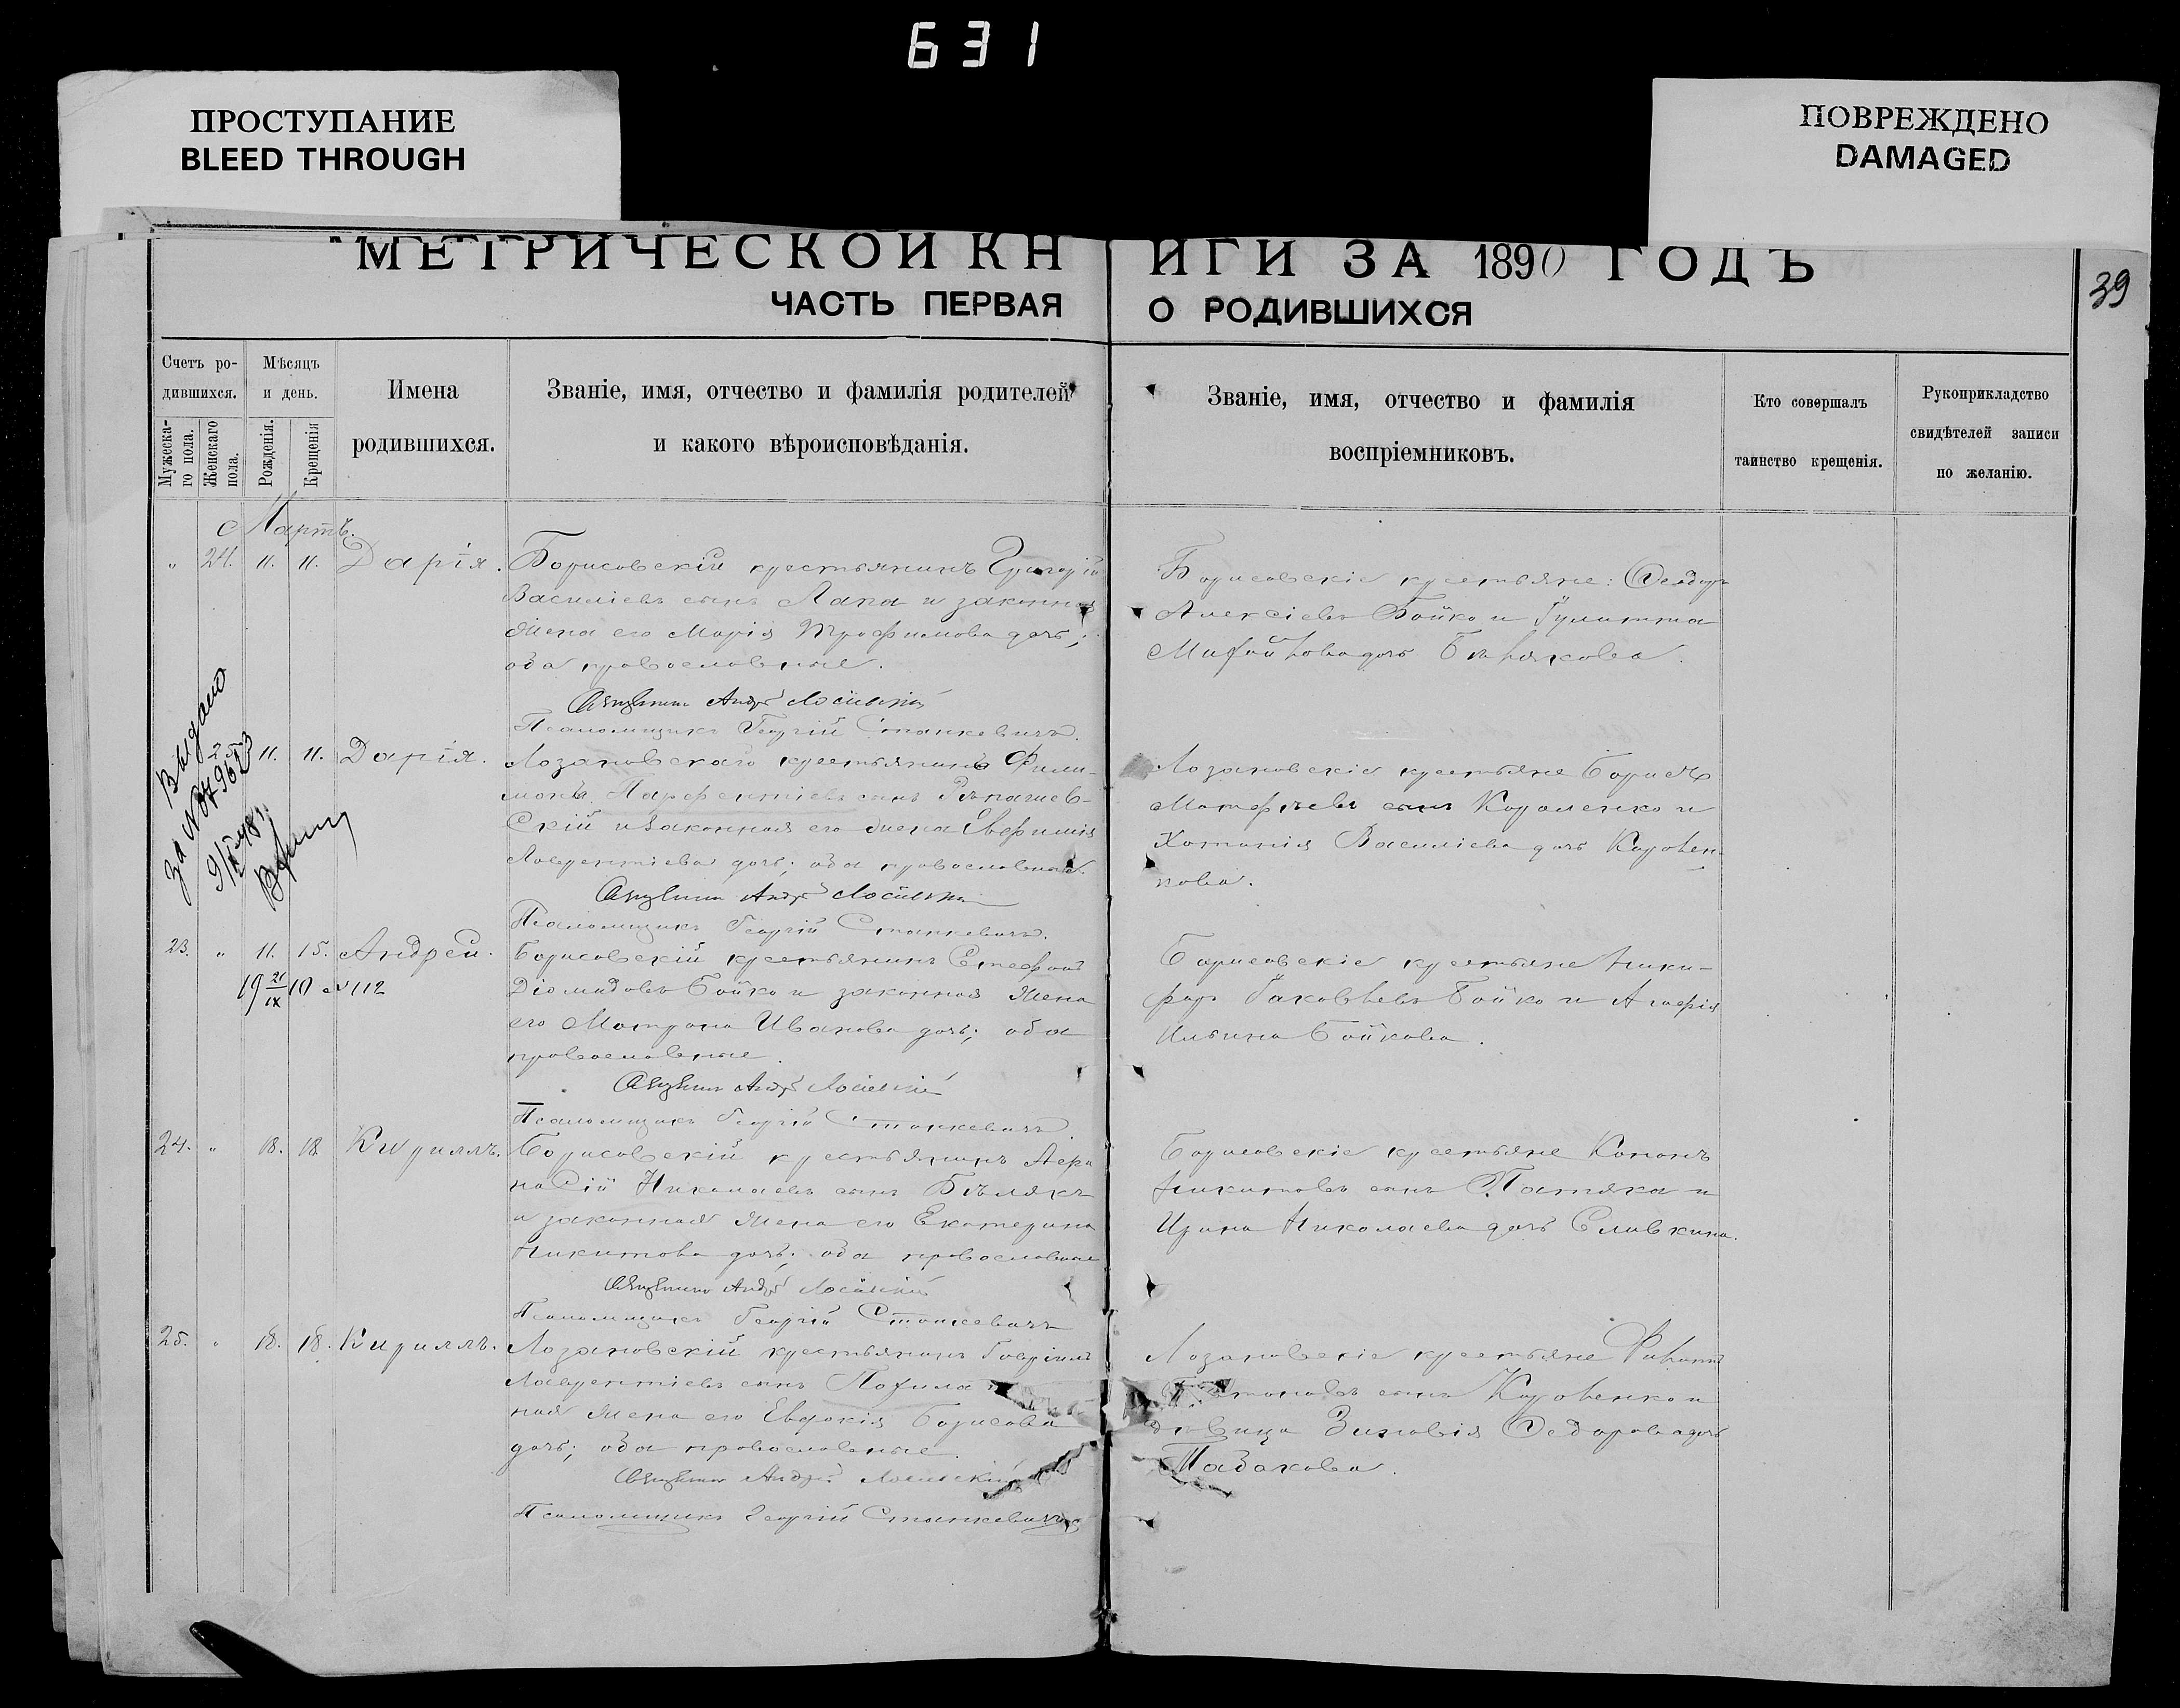 631
ПРОСТУПАНИЕ
BLEED THROUGH
ПОВРЕЖДЕНО
DAMAGED
МЕТРИЧЕСКОЙ КНИГИ ЗА 1890 ГОДЪ
39
ЧАСТЬ ПЕРВАЯ О РОДИВШИХСЯ
Счетъ ро-
дившихся.
Мужеска-
го пола.
Женскаго
пола.
Мѣсяцъ
и день.
Рожденія.
Крещенія
Имена
родившихся.
Званіе, имя, отчество и фамилія родителей
и какого вѣроисповѣданія.
Званіе, имя, отчество и фамилія
воспріемниковъ.
Кто совершалъ
таинство крещенія.
Рукоприкладство
свидѣтелей записи
по желанію.
Мартъ.
" 24. 11. 11. Дарія.
Борисовскій крестьянинъ Григорій
Василіевъ сынъ Лапа и законная
жена его Марія Трофимова дочь;
оба православные.
Священникъ Андрей
Псаломщикъ Георгій Станкевичъ.
Борисовскіе крестьяне: Ѳеодоръ
Алексіевъ Бойко и Іулитта
дочь
Выдано
за №
25 11. 11. Дарія.
Лозановскаго крестьянинъ Фили-
монъ Парфентіевъ сынъ
скій и законная его жена Евфимія
Лаврентіева дочь; оба православные.
Священникъ Андрей
Псаломщикъ Георгій Станкевичъ.
Лозановскіе крестьяне Борисъ
Матфѣевъ сынъ Коваленко и
Василіева дочь Коровен-
кова.
23. " 11. 15. Андрей.
19 21/IX 10 №112
Борисовскій крестьянинъ Стефанъ
Діомидовъ Бойко и законная жена
его Матрона Иванова дочь; оба
православные.
Священникъ Андрей
Псаломщикъ Георгій Станкевичъ.
Борисовскіе крестьяне Ники-
форъ Іаковлевъ Бойко и Агафія
Ильина Бойкова.
24. " 18. 18 Кириллъ.
Борисовскій крестьянинъ Аѳа
насій Николаевъ сынъ Бѣлякъ
и законная жена его Екатерина
Никитова дочь; оба православные
Священникъ Андрей
Псаломщикъ Георгій Станкевичъ
Борисовскіе крестьяне Кононъ
Никитовъ сынъ и
Ирина Николаева дочь Сливкина.
25. " 18. 18. Кириллъ.
Лозановскій крестьянинъ Гавріилъ
Лаврентіевъ сынъ
ная жена его Евдокія Борисова
дочь; оба православные.
Священникъ Андрей
Псаломщикъ Георгій Станкевичъ
Лозановскіе крестьяне
сынъ Коровенко и
дѣвица Зиновія Ѳедорова дочь
Табакова.